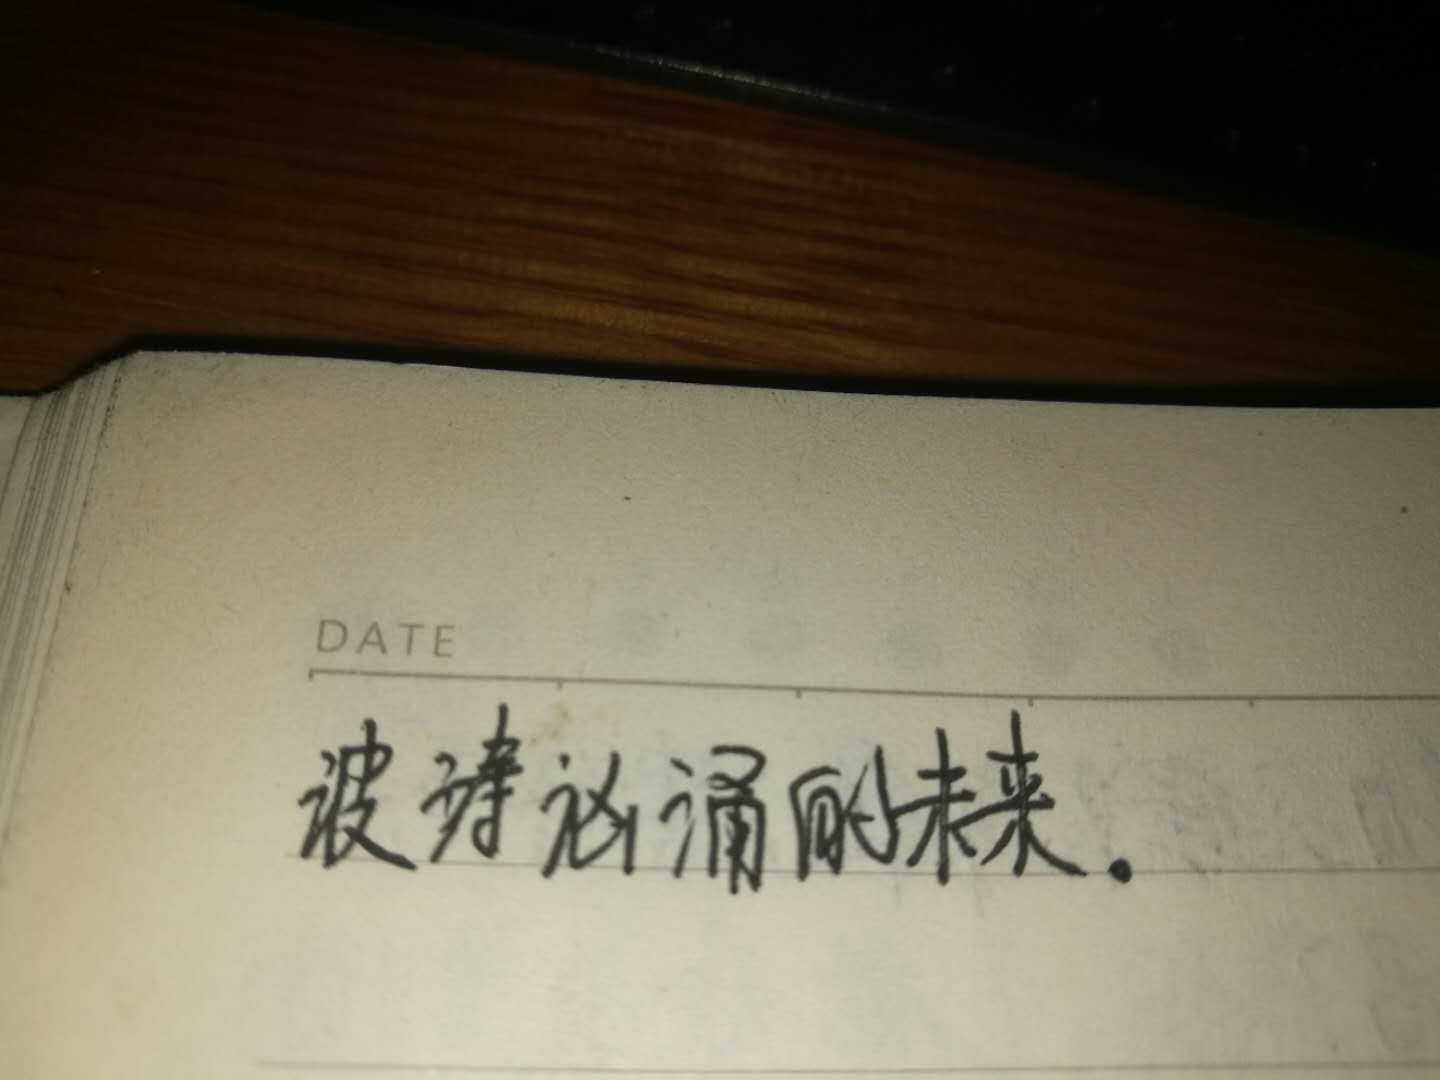 DATE
波涛汹涌的未来.